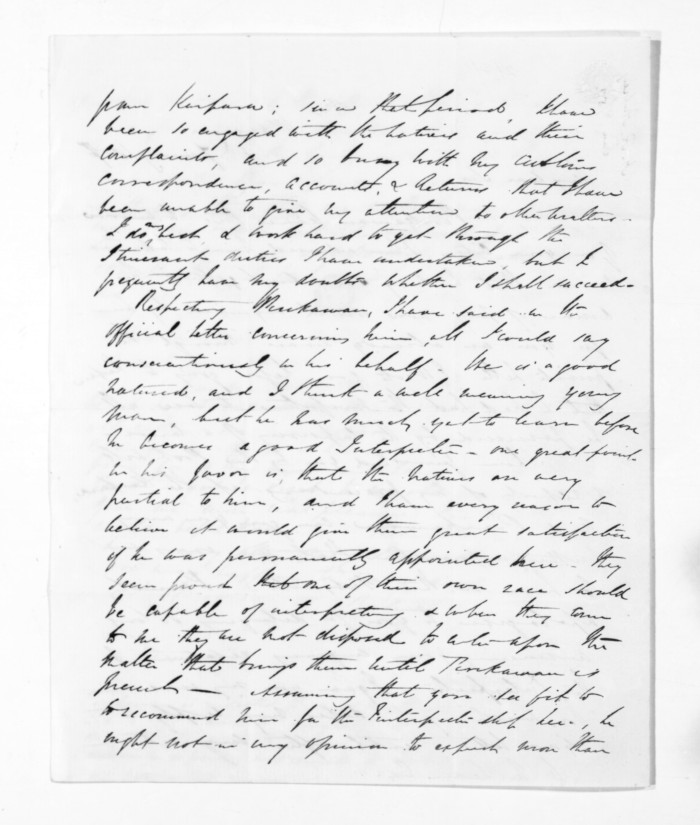 from Kaipara; since that period, I have
been so engaged with the natives and their
complaints, and so busy with my Customs
correspondence, accounts & Returns that I have
been unable to give my attention to other matters.
I do my best & work hard to get through the
Itinerant duties I have undertaken, but I
frequently have my doubts whether I shall succeed.
Respecting I have said in the
official letter concerning him all I could say
conscientiously in his behalf. He is a good
natured, and I think a well meaning young
man, but he has much yet to learn before
he becomes a good Interpreter - one great point
in his favor is, that the natives are very
partial to him, and I have every reason to
believe it would give them great satisfaction
if he was permanently appointed here - they
seem proud that one of their own race should
be capable of interpreting & when they come
to me they are not disposed to enter upon the
matter that brings them until is
present - Assuming that you see fit to
to recommend him for the Interpretership here, he
ought not in my opinion to expect more than